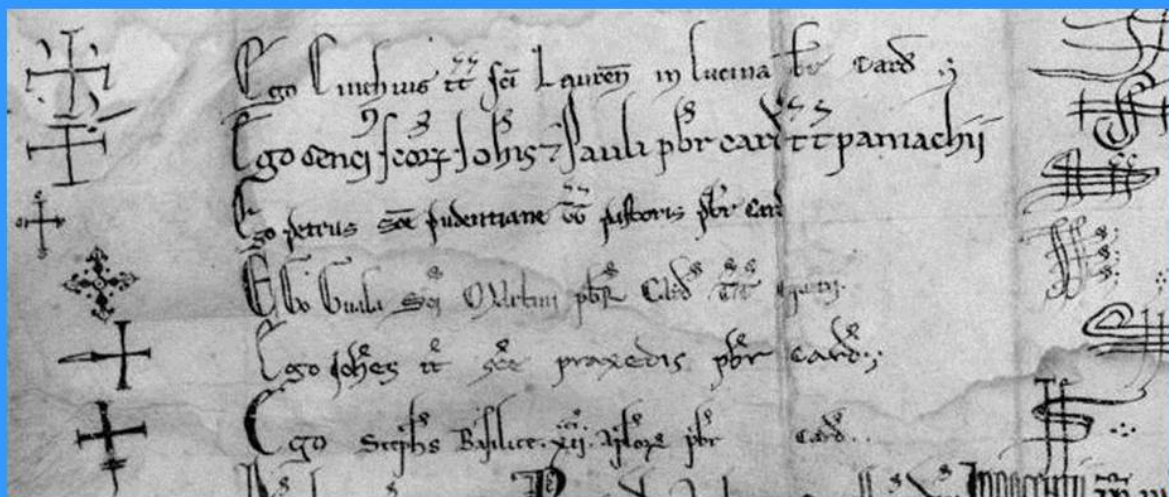 Ego Cinthius tt sci Lauren in lucina pbr card
Ego cenci scoꝝ Iohis ⁊ Pauli pbr card tt pamachii
Ego petrus sce pudentiane tt pastoris pbr card
Ego Guala sci Martini pbr Card tt
Ego Johes tt sce praxedis pbr card
Ego Stephs Basilice xii apłoꝝ pbr card